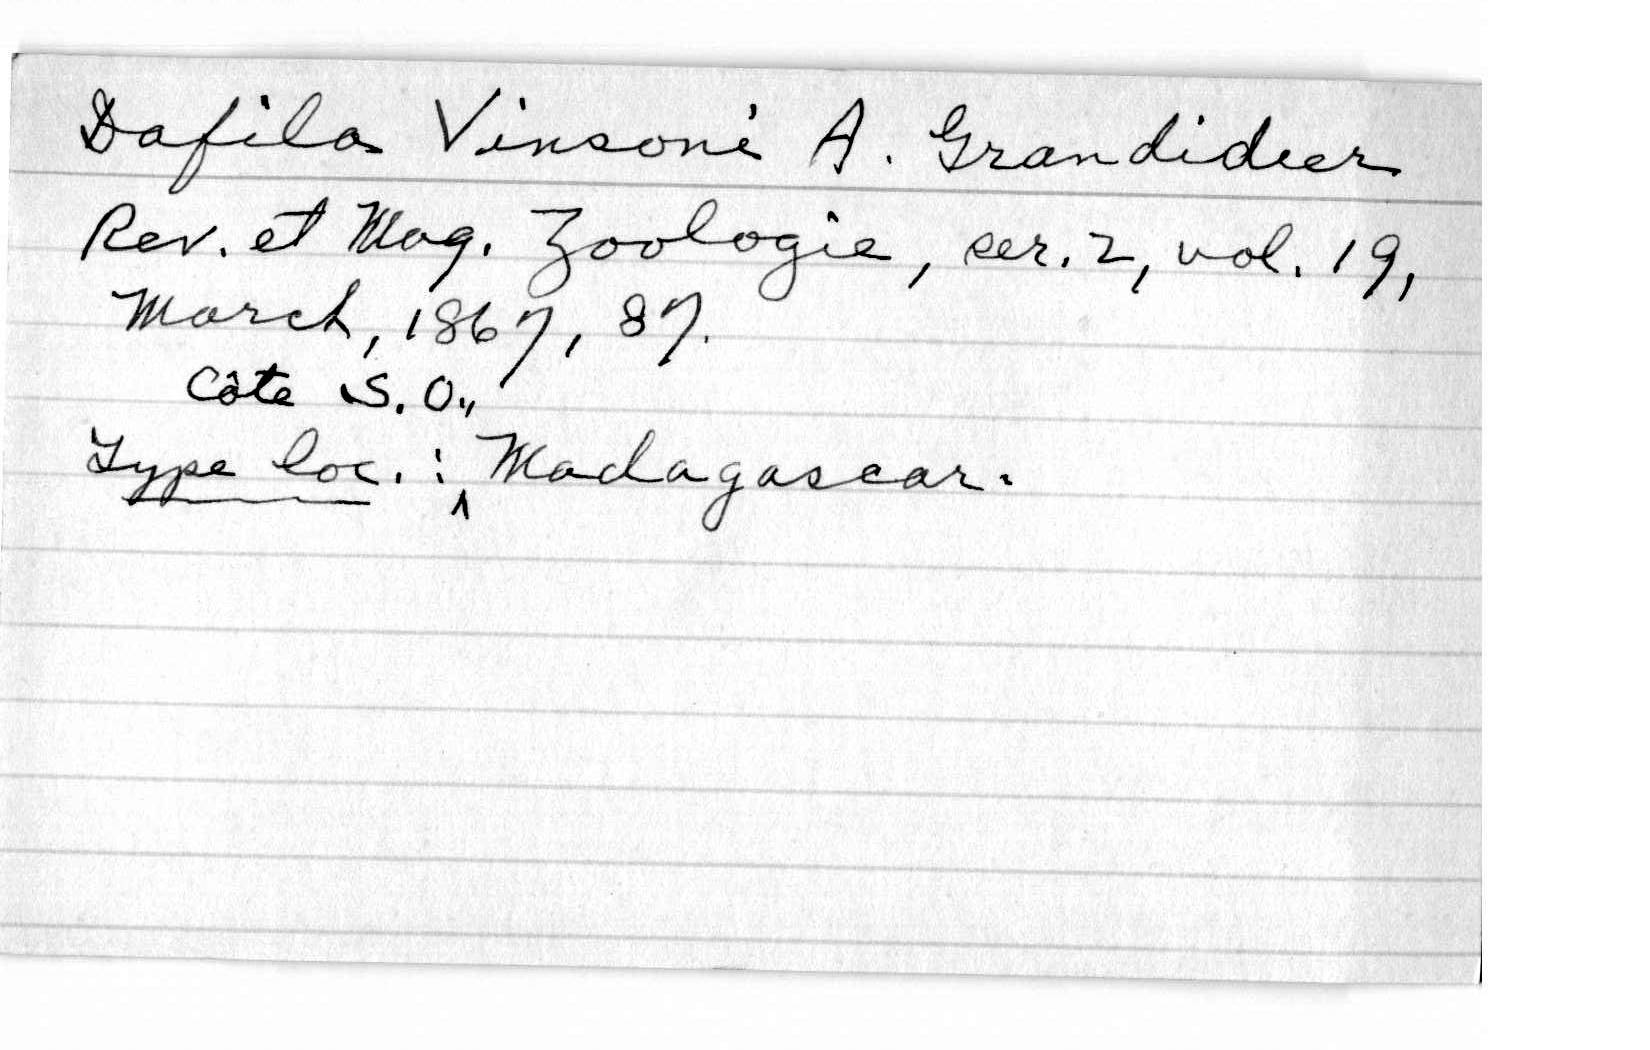 Dafila Vinsoni A. Grandidier
Rev. et Mag. Zoologie, ser. 2, vol. 19,
March, 1867, 87.
Côte S. O.,
Type loc. : ‸ Madagascar.